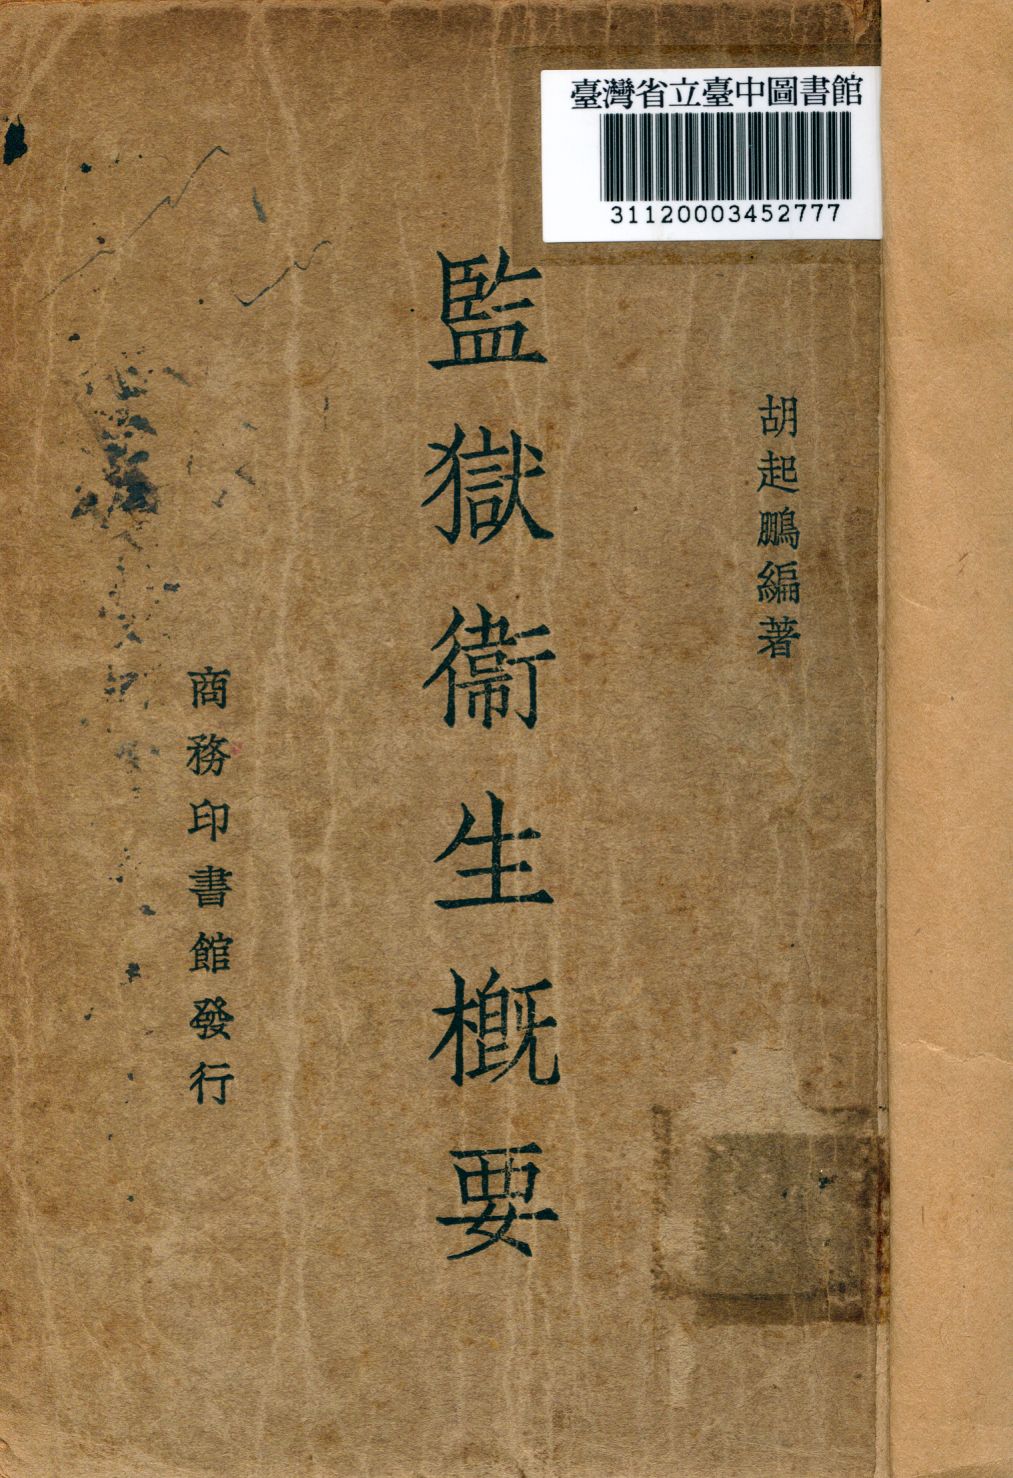 臺灣省立臺中圖書館
31120003452777
胡起鵬編著
監獄衞生概要
商務印書館發行